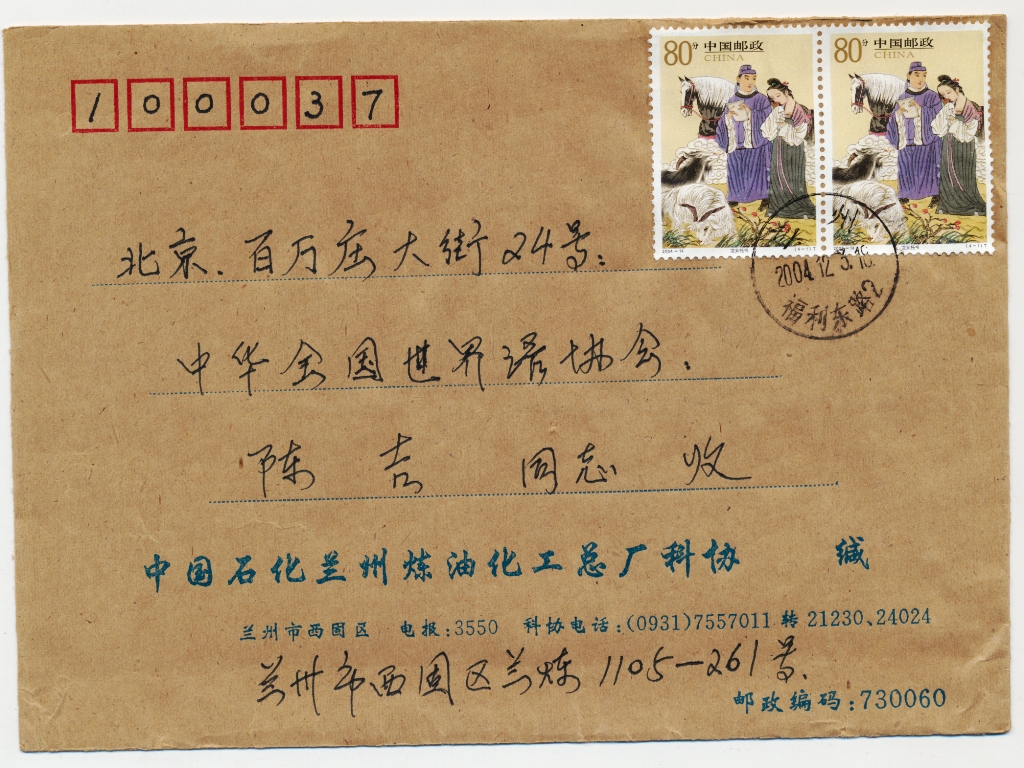 80分 中国邮政
CHINA
80分 中国邮政
CHINA
100037
2004.12.3.16
福利东路2
北京.百万庄大街24号:
中华全国世界语协会:
陈吉 同志 收
中国石化兰州炼油化工总厂科协 缄
兰州市西固区 电报:3550 科协电话:(0931)7557011 转 21230、24024
兰州市西固区兰炼1105-261号.
邮政编码:730060